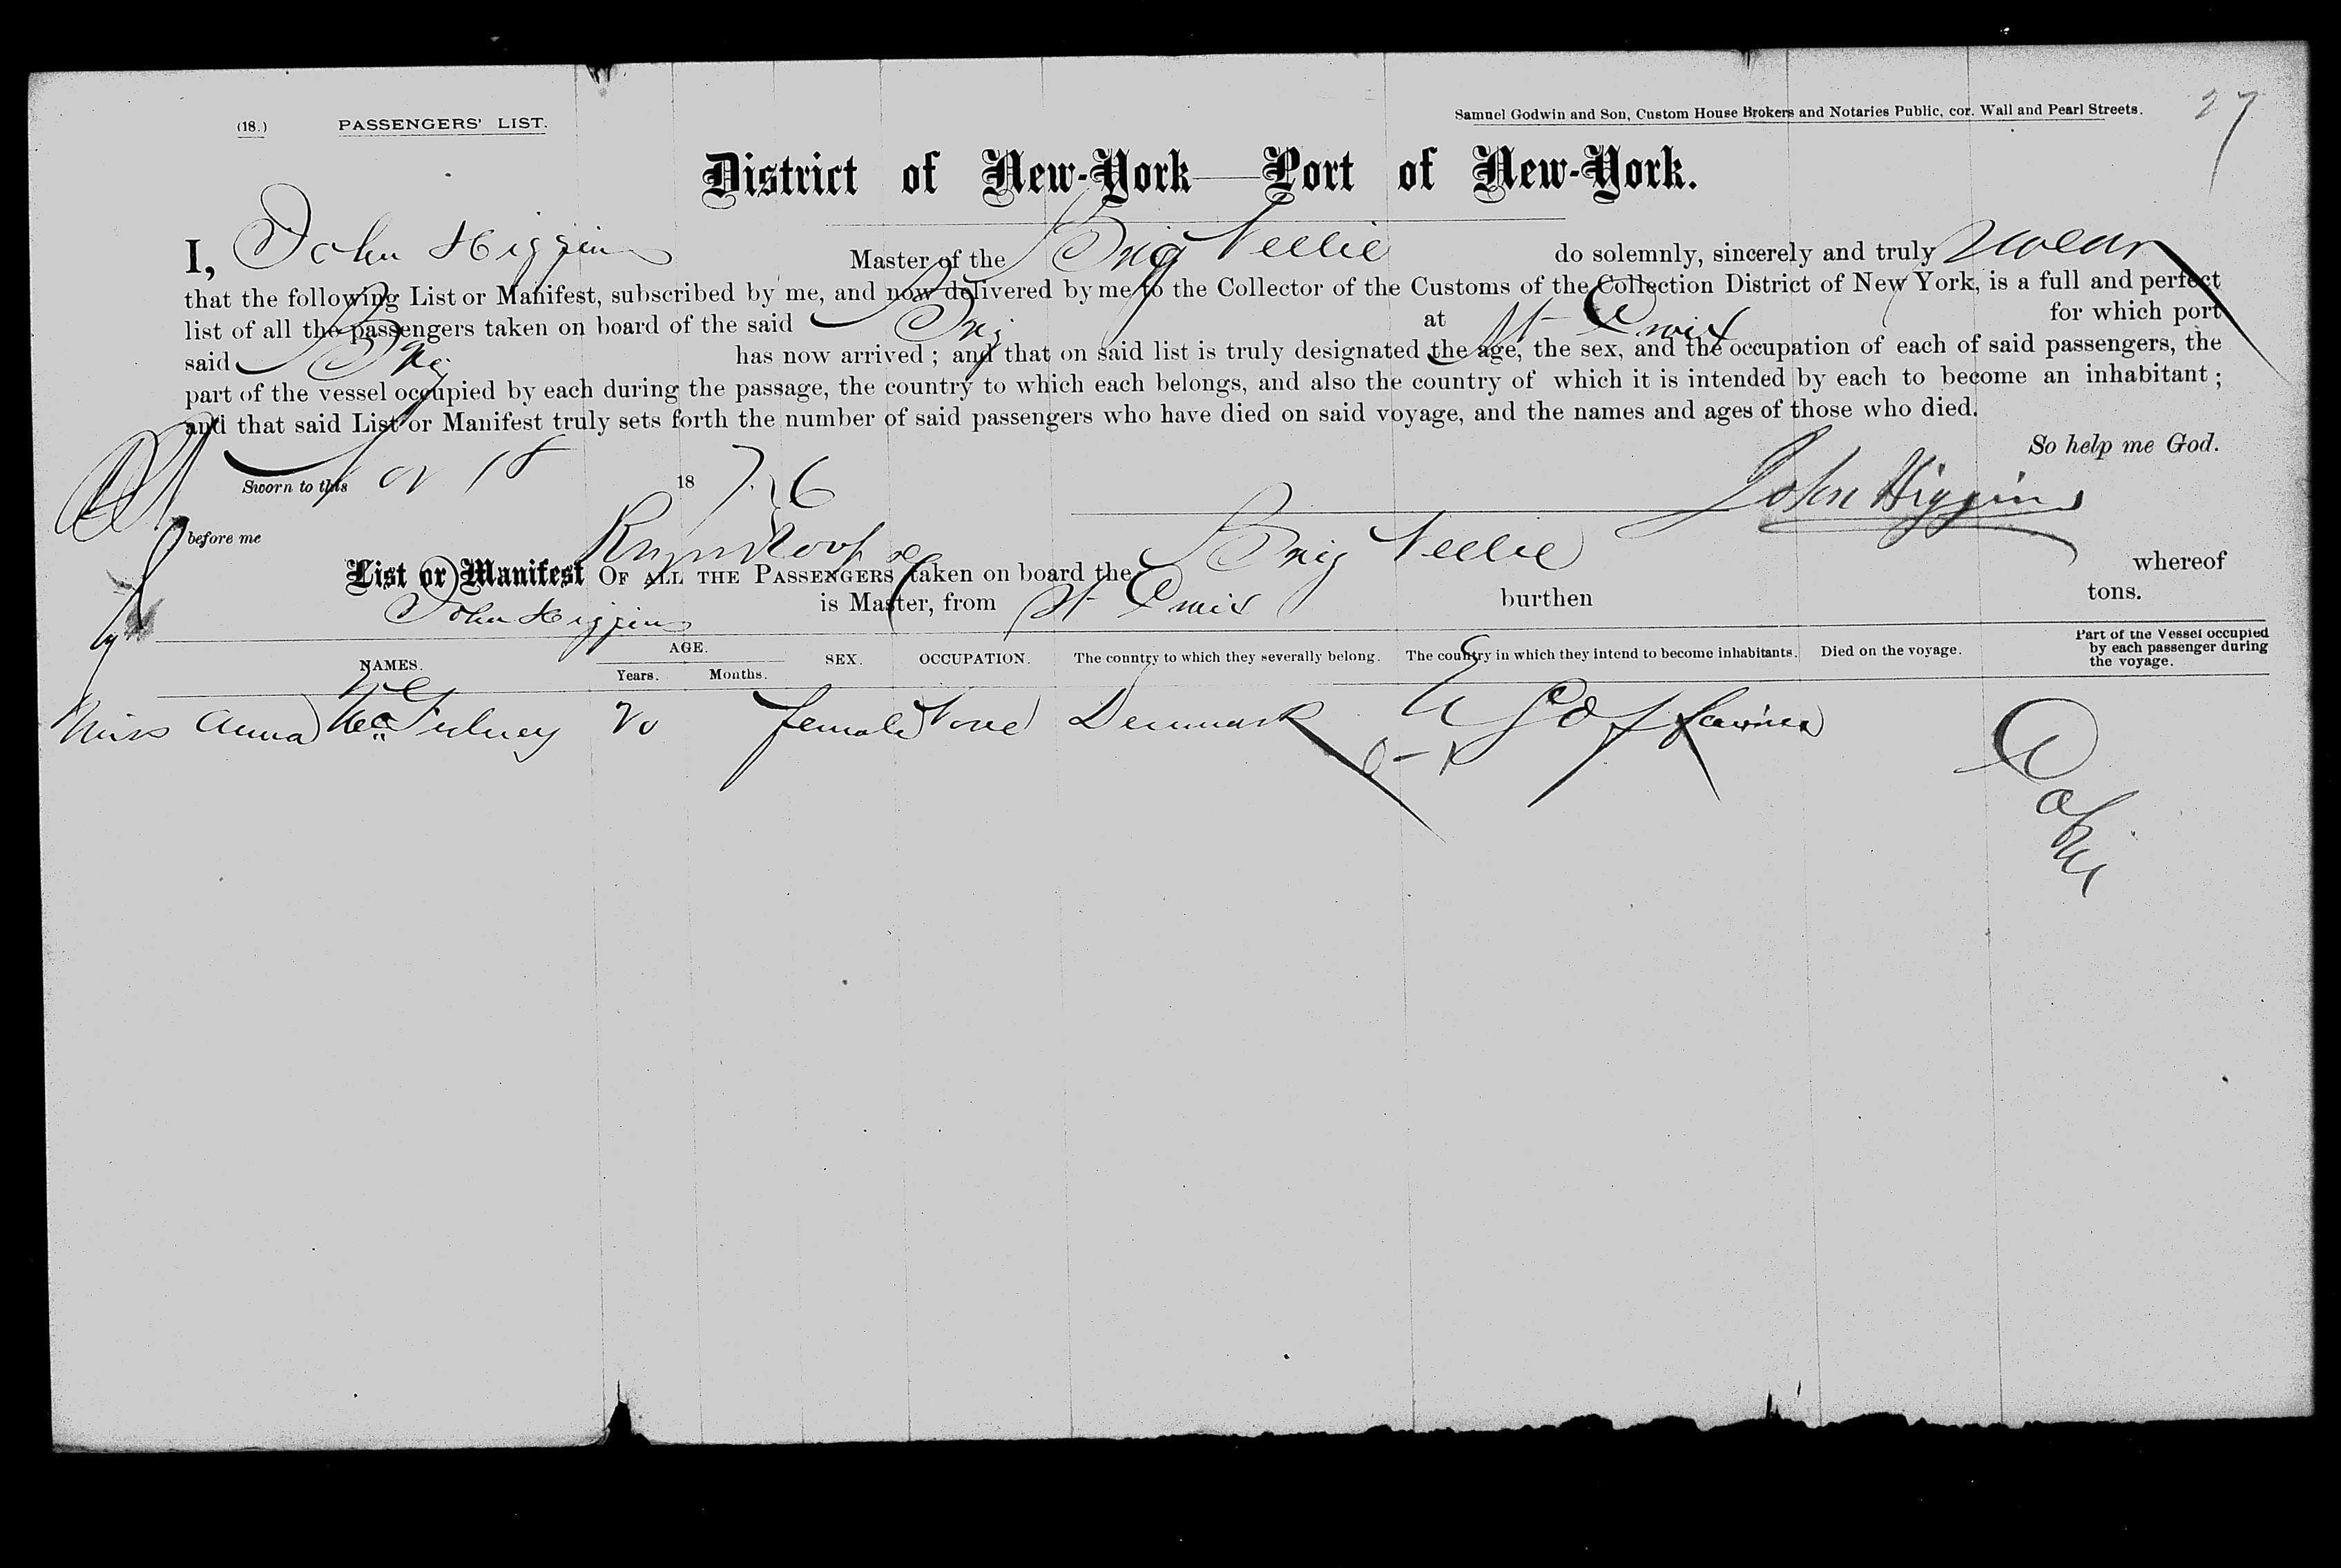 27
(18.) PASSENGERS' LIST. Samuel Godwin and Son, Custom House Brokers and Notaries Public, cor. Wall and Pearl Streets.
District of New-York—Port of New-York.
I, John Higgins Master of the Brig Nellie do solemnly, sincerely and truly swear
that the following List or Manifest, subscribed by me, and now delivered by me to the Collector of the Customs of the Collection District of New York, is a full and perfect
list of all the passengers taken on board of the said Brig at St Croix for which port
said Brig has now arrived ; and that on said list is truly designated the age, the sex, and the occupation of each of said passengers, the
part of the vessel occupied by each during the passage, the country to which each belongs, and also the country of which it is intended by each to become an inhabitant ;
and that said List or Manifest truly sets forth the number of said passengers who have died on said voyage, and the names and ages of those who died.
So help me God.
Sworn to this 18 1876 John Higgins
before me
List or Manifest OF ALL THE PASSENGERS taken on board the Brig Nellie whereof
John Higgins is Master, from St Croix burthen tons.
NAMES. AGE. Years. Months. SEX. OCCUPATION. The conntry to which they severally belong. The country in which they intend to become inhabitants. Died on the voyage. Part of the Vessel occupied by each passenger during the voyage.
Miss Anna 20 female None Denmark Cabin